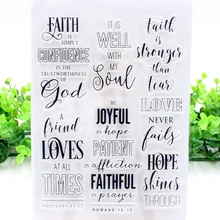 FAITH
IS SIMPLY
CONFIDENCE
IN THE
TRUSTWORTHINESS
OF
God
A
friend
LOVES
AT ALL
TIMES
PROVERBS 17:17
IT IS
WELL
WITH
MY
Soul
BE
JOYFUL
in hope
PATIENT
in affliction
FAITHFUL
in prayer
ROMANS 12:12
Faith
is
stronger
than
fear
LOVE
NEVER
fails
HOPE
shines
THROUGH